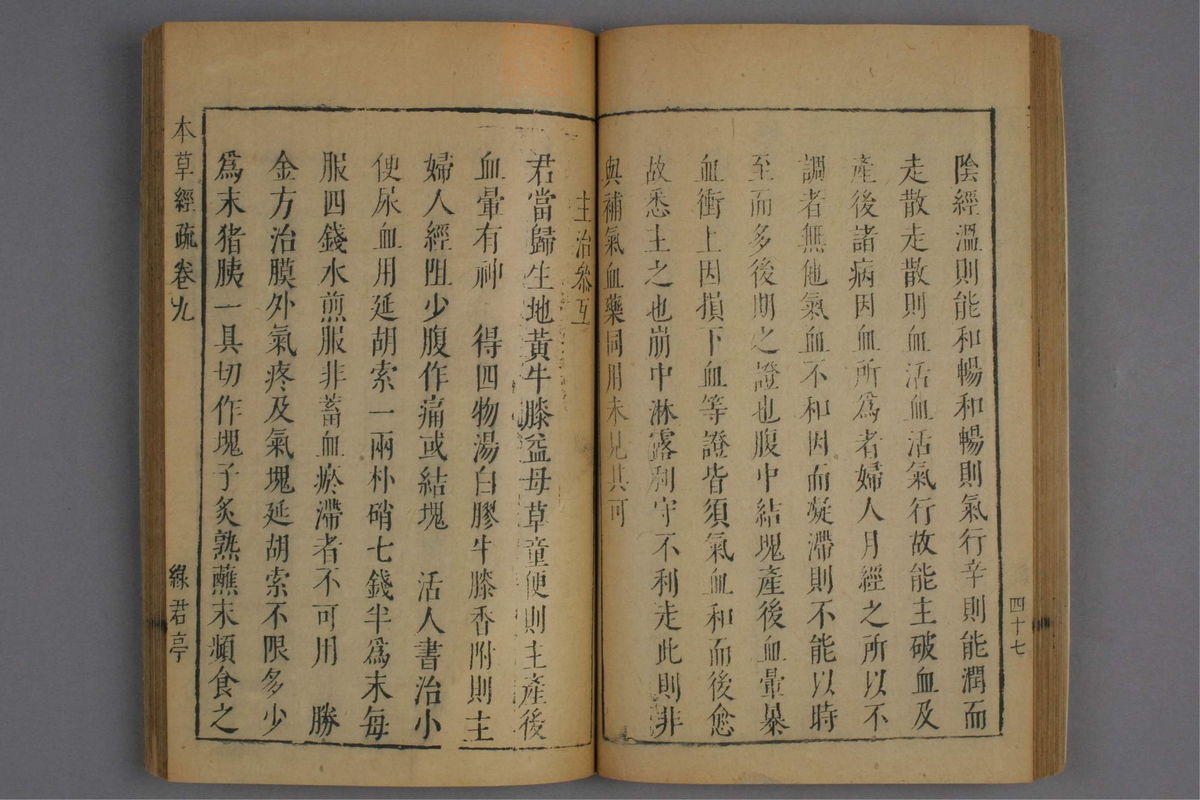 陰經溫則能和暢和暢則氣行辛則能潤而
走散走散則血活血活氣行故能主破血及
產後諸病因血所爲者婦人月經之所以不
調者無他氣血不和因而凝滯則不能以時
至而多後期之證也腹中結塊產後血暈暴
血衝上因損下血等證皆須氣血和而後愈
故悉主之也崩中淋露利守不利走此則非
與補氣血藥同用未見其可
四十七
主治參互
君當歸生地黃牛膝益母草童便則主產後
血暈有神　得四物湯白膠牛膝香附則主
婦人經阻少腹作痛或結塊　活人書治小
便尿血用延胡索一兩朴硝七錢半爲末每
服四錢水煎服非蓄血瘀滯者不可用　勝
金方治膜外氣疼及氣塊延胡索不限多少
爲末猪胰一具切作塊子炙熟蘸末頻食之
本草經疏卷九
綠君亭